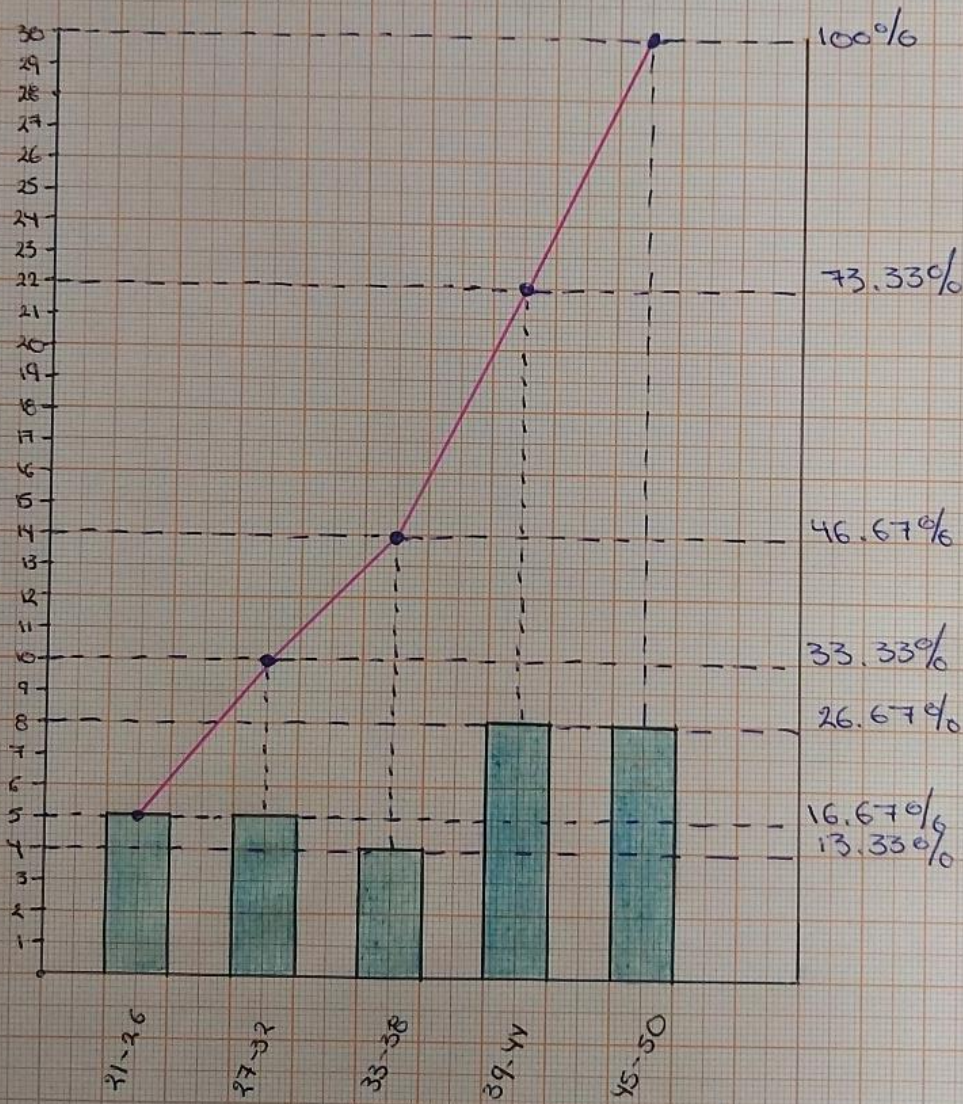 30
29
28
27
26
25
24
23
22
21
20
19
18
17
16
15
14
13
12
11
10
9
8
7
6
5
4
3
2
1
0
100%
73.33%
46.67%
33.33%
26.67%
16.67%
13.33%
21-26
27-32
33-38
39-44
45-50